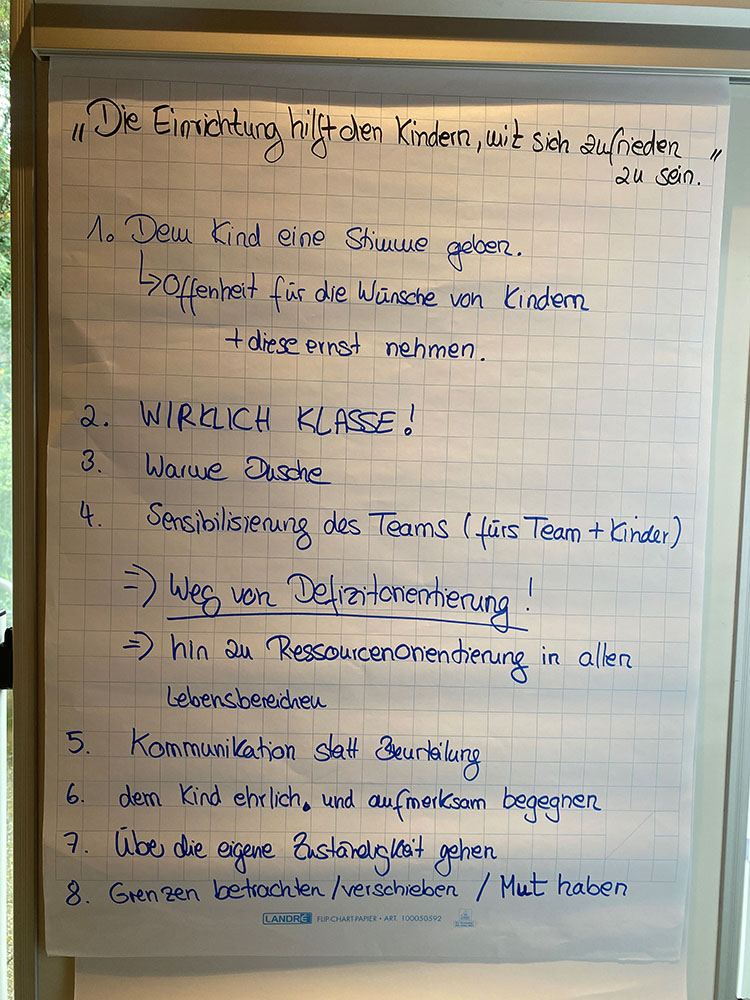 „Die Einrichtung hilft den Kindern, mit sich zufrieden
zu sein."
1. Dem Kind eine Stimme geben.
↳ Offenheit für die Wünsche von Kindern
+ diese ernst nehmen.
2. WIRKLICH KLASSE!
3. Warme Dusche
4. Sensibilisierung des Teams (fürs Team + Kinder)
=> Weg von Defizitorientierung!
=> hin zu Ressourcenorientierung in allen
Lebensbereichen
5. Kommunikation statt Beurteilung
6. dem Kind ehrlich. und aufmerksam begegnen
7. Übe die eigene Zuständigkeit gehen
8. Grenzen betrachten / verschieben / Mut haben
LANDRÉ FLIP-CHART-PAPIER • ART. 100050592